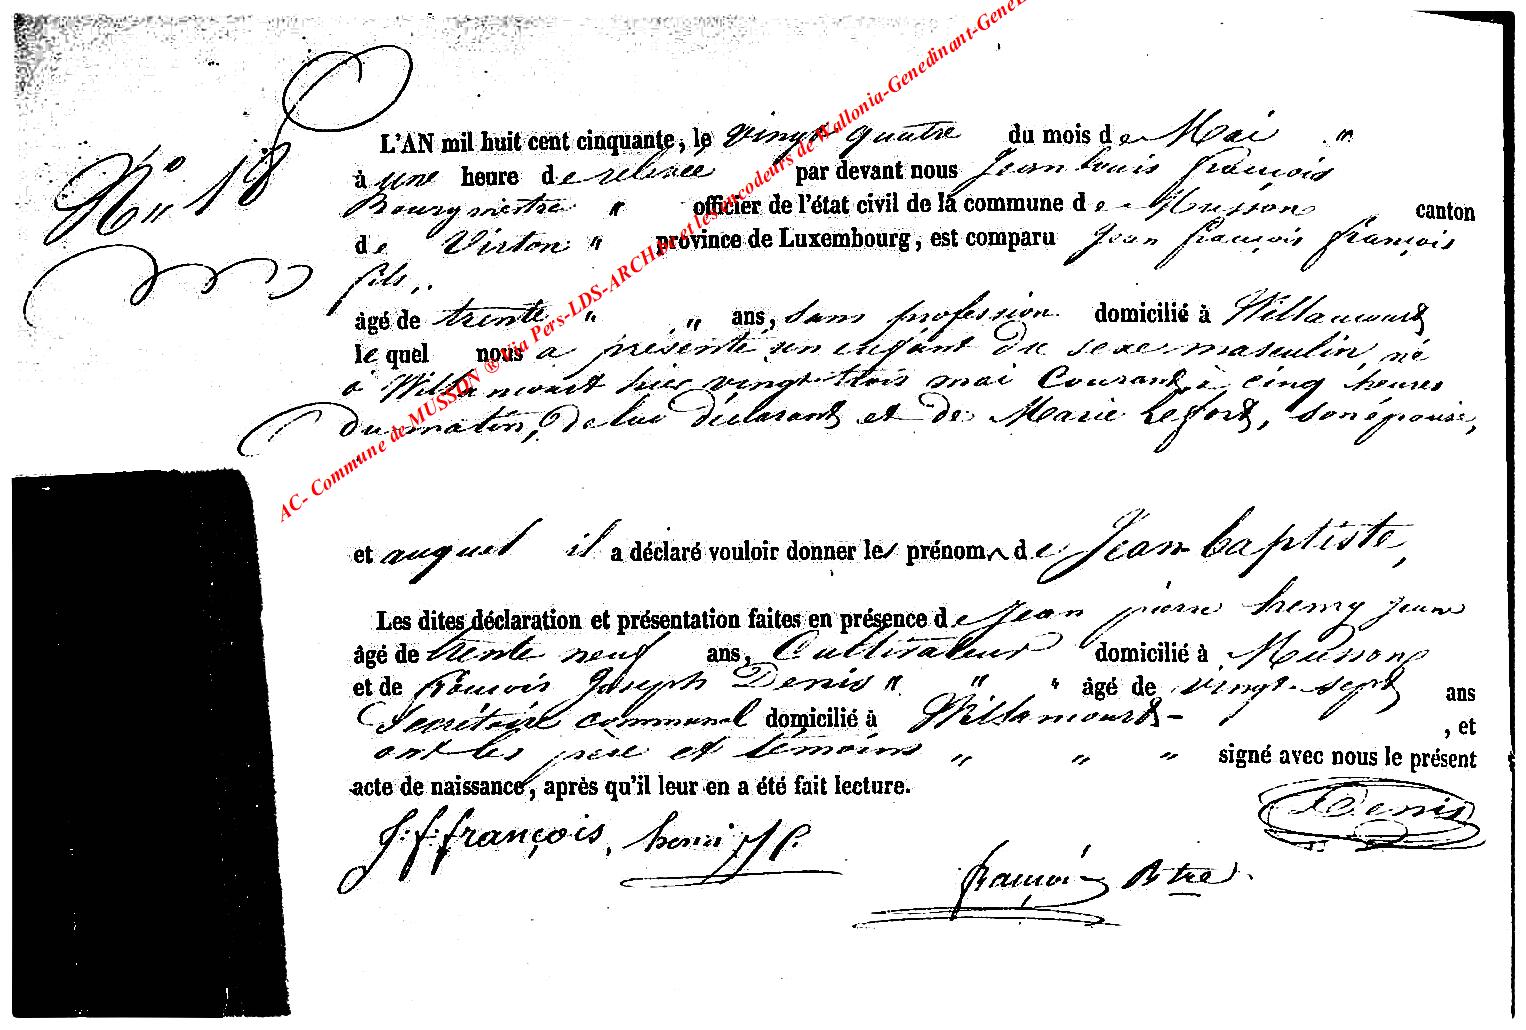 N° 18
L'AN mil huit cent cinquante, le vingt quatre du mois de Mai "
à une heure de relevée par devant nous Jean Louis françois
Bourgmestre " officier de l'état civil de la commune de Musson canton
de Virton " province de Luxembourg, est comparu Jean françois françois
fils,
âgé de trente " " ans, sans profession domicilié à Willancourt
le quel nous a présenté un enfant du sexe masculin, né
à Willancourt hier vingt trois mai Courant, à cinq heures
du matin, de lui déclarant et de Marie Lefort, son épouse,
et auquel il a déclaré vouloir donner les prénoms de Jean-baptiste,
Les dites déclaration et présentation faites en présence de Jean pierre henry jeune
âgé de trente neuf ans, Cultivateur domicilié à Musson
et de françois Joseph Denis " " " âgé de vingt-sept ans
Secrétaire communal domicilié à Willancourt - , et
ont les père et témoins " " " signé avec nous le présent
acte de naissance, après qu'il leur en a été fait lecture.
Denis
J. f. françois, henri J P.
françois Btre
AC- Commune de MUSSON ® via Pers-LDS-ARCH.be et les encodeurs de Wallonia-Genedinant-GeneL